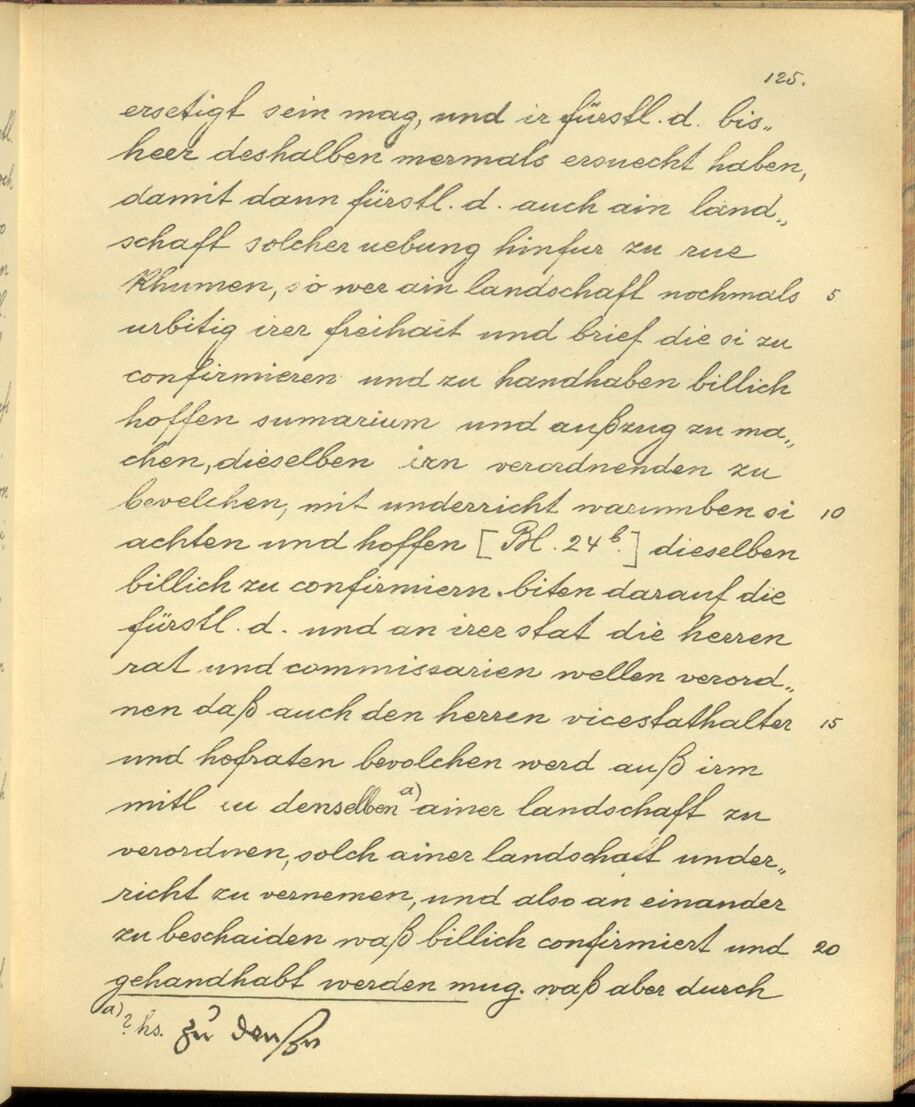 125.
ersetigt sein mag, und ir fürstl. d. bis„
heer deshalben mermals ersuecht haben,
damit dann fürstl. d. auch ain land„
schaft solcher uebung hinfur zu rue
Khumen, so wer ain landschaft nochmals 5
urbitig irer freihait und brief die si zu
confirmieren und zu handhaben billich
hoffen sumarium und außzug zu ma„
chen, dieselben irn verordnenden zu
bevelchen, mit underricht warumben si 10
achten und hoffen [Bl. 24b.] dieselben
billich zu confirmiern. biten darauf die
fürstl. d. und an irer stat die herren
rat und commissarien wellen verord„
nen daß auch den herren vicestathalter 15
und hofraten bevolchen werd auß irm
mitl zu denselben a) ainer landschaft zu
verordnen, solch ainer landschaft under„
richt zu vernemen, und also an einander
zu beschaiden waß billich confirmiert und 20
gehandhabt werden mug. waß aber durch
a) ? hs. zu